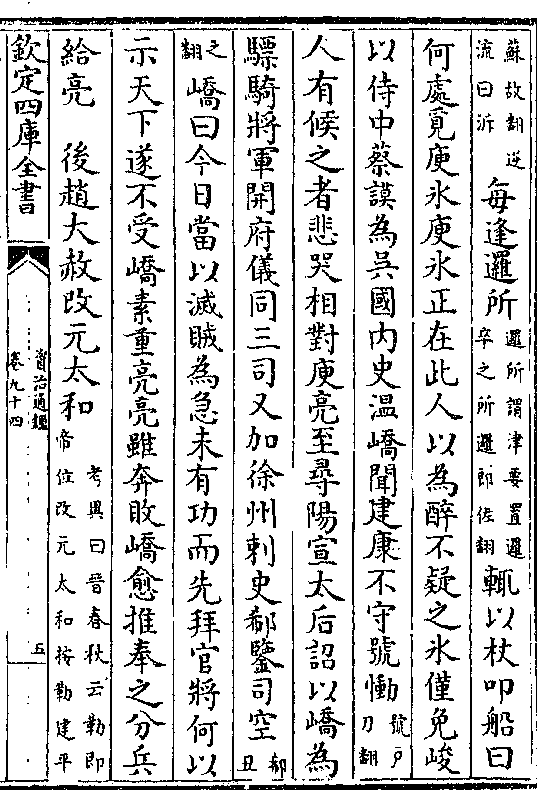 蘇故翻逆流曰泝每逢邏所邏所謂津要置邏卒之所邏郎佐翻輒以杖叩船曰
何處覓庾氷庾氷正在此人以為醉不疑之氷僅免峻
以侍中蔡謨為吳國内史温嶠聞建康不守號慟號戸刀翻
人有候之者悲哭相對庾亮至尋陽宣太后詔以嶠為
驃騎將軍開府儀同三司又加徐州刺史郗鑒司空郗丑
之翻嶠曰今日當以滅賊為急未有功而先拜官將何以
示天下遂不受嶠素重亮亮雖奔敗嶠愈推奉之分兵
給亮 後趙大赦改元太和考異曰晉春秋云勒即帝位改元太和按勒建平
欽定四庫全書
資治通鑑
卷九十四
五